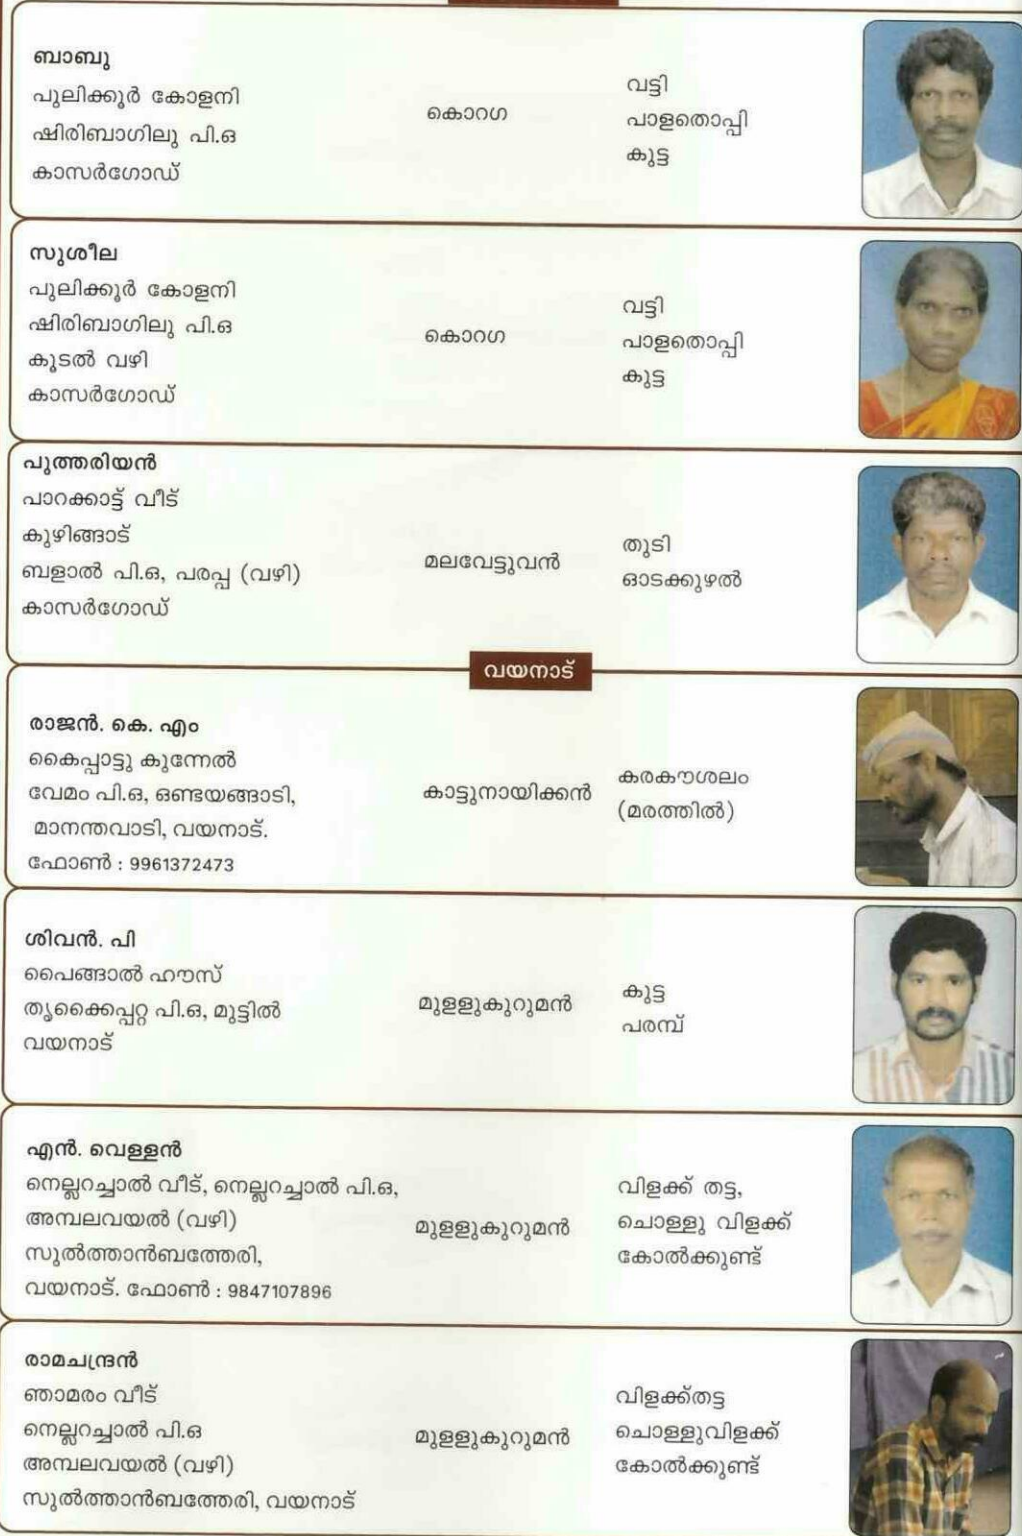 ബാബു
പുലിക്കൂർ കോളനി
ഷിരിബാഗിലു പി.ഒ
കാസർഗോഡ്
കൊറഗ
വട്ടി
പാളതൊപ്പി
കുട്ട
സുശീല
പുലിക്കൂർ കോളനി
ഷിരിബാഗിലു പി.ഒ
കൂടൽ വഴി
കാസർഗോഡ്
കൊറഗ
വട്ടി
പാളതൊപ്പി
കുട്ട
പുത്തരിയൻ
പാറക്കാട്ട് വീട്
കുഴിങ്ങാട്
ബളാൽ പി.ഒ, പരപ്പ (വഴി)
കാസർഗോഡ്
മലവേട്ടുവൻ
തുടി
ഓടക്കുഴൽ
വയനാട്
രാജൻ. കെ. എം
കൈപ്പാട്ടു കുന്നേൽ
വേമം പി.ഒ, ഒണ്ടയങ്ങാടി,
മാനന്തവാടി, വയനാട്.
ഫോൺ : 9961372473
കാട്ടുനായിക്കൻ
കരകൗശലം
(മരത്തിൽ)
ശിവൻ. പി
പൈങ്ങാൽ ഹൗസ്
തൃക്കൈപ്പറ്റ പി.ഒ, മുട്ടിൽ
വയനാട്
മുളളുകുറുമൻ
കുട്ട
പരമ്പ്
എൻ. വെള്ളൻ
നെല്ലറച്ചാൽ വീട്, നെല്ലറച്ചാൽ പി.ഒ,
അമ്പലവയൽ (വഴി)
സുൽത്താൻബത്തേരി,
വയനാട്. ഫോൺ : 9847107896
മുളളുകുറുമൻ
വിളക്ക് തട്ട,
ചൊള്ളു വിളക്ക്
കോൽക്കുണ്ട്
രാമചന്ദ്രൻ
ഞാമരം വീട്
നെല്ലറച്ചാൽ പി.ഒ
അമ്പലവയൽ (വഴി)
സുൽത്താൻബത്തേരി, വയനാട്
മുളളുകുറുമൻ
വിളക്ക്തട്ട
ചൊള്ളുവിളക്ക്
കോൽക്കുണ്ട്